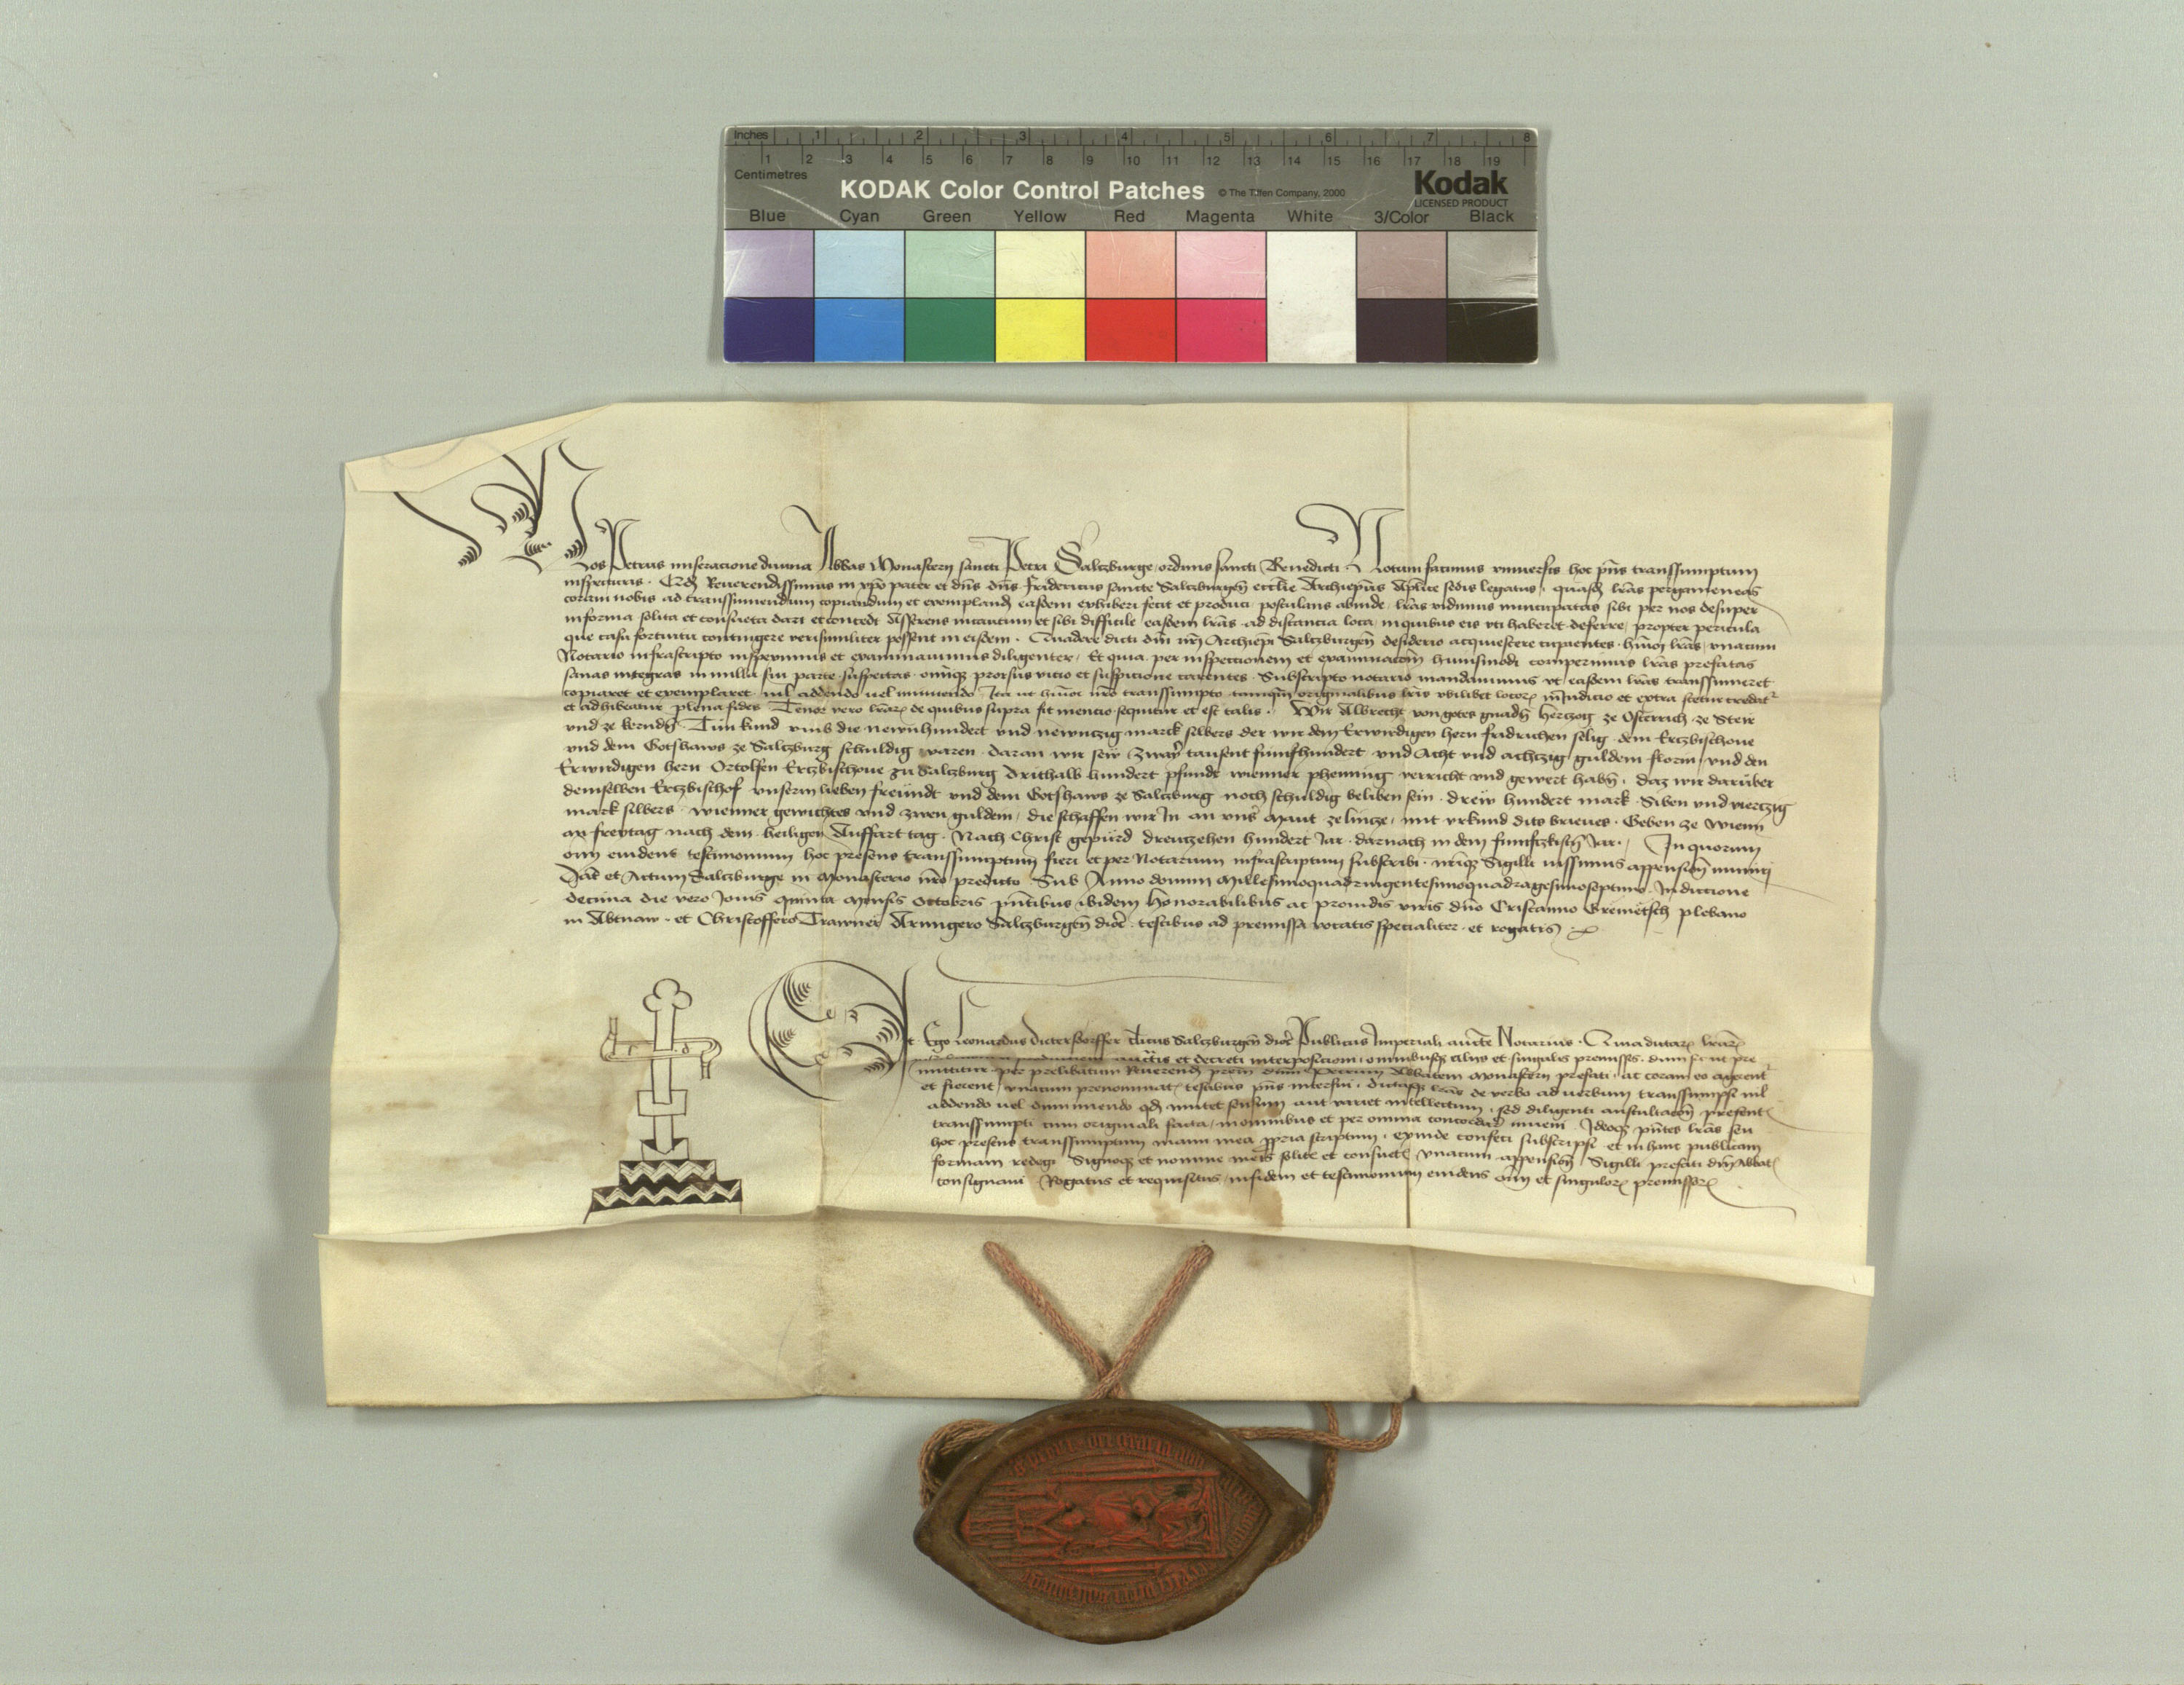 Inches 1 2 3 4 5 6 7 8
1 2 3 4 5 6 7 8 9 10 11 12 13 14 15 16 17 18 19
Centimetres
KODAK Color Control Patches © The Tiffen Company, 2000 Kodak
LICENSED PRODUCT
Blue Cyan Green Yellow Red Magenta White 3/Color Black
Nos Petrus miseracione diuina Abbas Monasterij sancti Petri Saltzburge ordinis sancti Benedicti Notum facimus vniuersis hoc pn̄s transsumptum
inspecturis. Qd̄ Reuerendissimus in xp̄o pater et dn̄s dn̄s Fridericus sancte Saltzburgen̄ eccl̄ie Archiep̄us Ap̄lice sedis legatus, quasd̄ lr̄as pergameneas
coram nobis ad transsumendum copiandum et exempland̄ easdem exhiberi fecit et produci postulans abinde lr̄as vidimus nuncupatas sibi per nos desuper
in forma solita et consueta dari et concedi Asserens incautum et sibi difficile easdem lr̄as ad distancia loca in quibus eis vti haberet deferre, propter pericula
que casu fortuitu contingere verisimiliter possent in eisdem. Quadare dicti dn̄i nr̄i Archiep̄i Saltzburgen̄ desiderio acquiescere cupientes, hm̄oi lr̄as vnacum
Notario infrascripto inspeximus et examinauimus diligenter, Et quia per inspectionem et examinacōm huiusmodi comperimus lr̄as prefatas
sanas integras in nulla sui parte suspectas om̄iq̄ prorsus vicio et suspicione carentes. Subscripto notario mandauimus vt easdem lr̄as transsumeret
copiaret et exemplaret nil addendo uel minuendo Ita ut hm̄oi nr̄o transsumpto tamq̄m originalibus lr̄is vbilibet locor̄ in Iudicio et extra stetur credat̄
et adhibeatur plena fides Tenor vero lr̄ar̄ de quibus supra fit mencio sequitur et est talis. Wir Albrecht von gotes gnadn̄ Hertzog ze Osterrich ze Steir
vnd ze kerndn̄ Tun kund vmb die newnhundert vnd newntzig marck silbers der wir dem Erwirdigen hern fridrichen selig dem Ertzbischoue
vnd dem Gotshaws ze Saltzburg schuldig waren. daran wir seiv̈ zway tausent funfhundert vnd Acht vnd achtzig guldem florin vnd den
Erwirdigen hern Ortolfen Ertzbischoue zu Saltzburg drithalb hundert pfundt wienner phenning verricht vnd gewert habn̄, daz wir darüber
demselben Ertzbischof vnserm lieben freündt vnd dem Gotshaws ze Saltzburg noch schuldig beliben sein. drew hundert mark. Siben vnd viertzig
mark silbers wienner gewichtes vnd zwen guldem, die schaffen wir In an vns̄ Maut ze lintze, mit vrkund dits brieues. Geben ze wienn
an freytag nach dem heiligen Auffart tag. Nach Christ gepürd dreutzehen hundert Jar darnach in dem funfftzkistn̄ Jar. In quorum
om̄ euident testimonium hoc presens transsumptum fieri et per Notarium infrascriptum subscribi nr̄iq̄ Sigilli iussimus appension̄ muniri
Dat̄ et Actum Saltzburge in monasterio nr̄o predicto Sub Anno domini Millesimoquadringentesimoquadragesimoseptimo. Indiccione
decima die vero Jouis quinta mensis Octobris pn̄tibus ibidem honorabilibus ac prouidis viris dn̄o Cristanno Gremetsch plebano
in Abtnaw. et Christoffero Trawner Armigero Saltzburgen̄ dioc̄. testibus ad premissa vocatis specialiter et rogatis
Et Ego Leonardus Dietersdorffer cl̄icus Saltzburgen̄ dioc̄ Publicus Imperiali auct̄e Notarius. Quia dictar̄ lr̄ar̄
auct̄tis et decreti interposicioni omnibusq̄ alijs et singulis premissis. dum sicut pre
mittitur per prelibatum Reuerend̄ prēm dn̄m Petrum Abbatem Monasterij prefati, ac coram eo agerent̄
et fierent vnacum prenominat̄ testibus pn̄s interfui. dictasq̄ lr̄as de verbo ad uerbum transsumpsi nil
addendo uel diminuendo qd̄ mutet sensum aut variet intellectum, sed diligenti auscultacōn̄ present̄
transsumpti cum originali facta, in omnibus et per omnia concordar̄ inueni. Ideoq̄ pn̄tes lr̄as seu
hoc presens transsumptum manu mea ppria scriptum, exinde confeci subscripsi et in hanc publicam
formam redegi Signoq̄ et nomine meis solitis et consuet̄ vnacum appension̄ Sigilli prefati dn̄i Abbat̄
consignaui. Rogatus et requisitus, in fidem et testimonium euidens om̄ et singulor̄ premissor̄